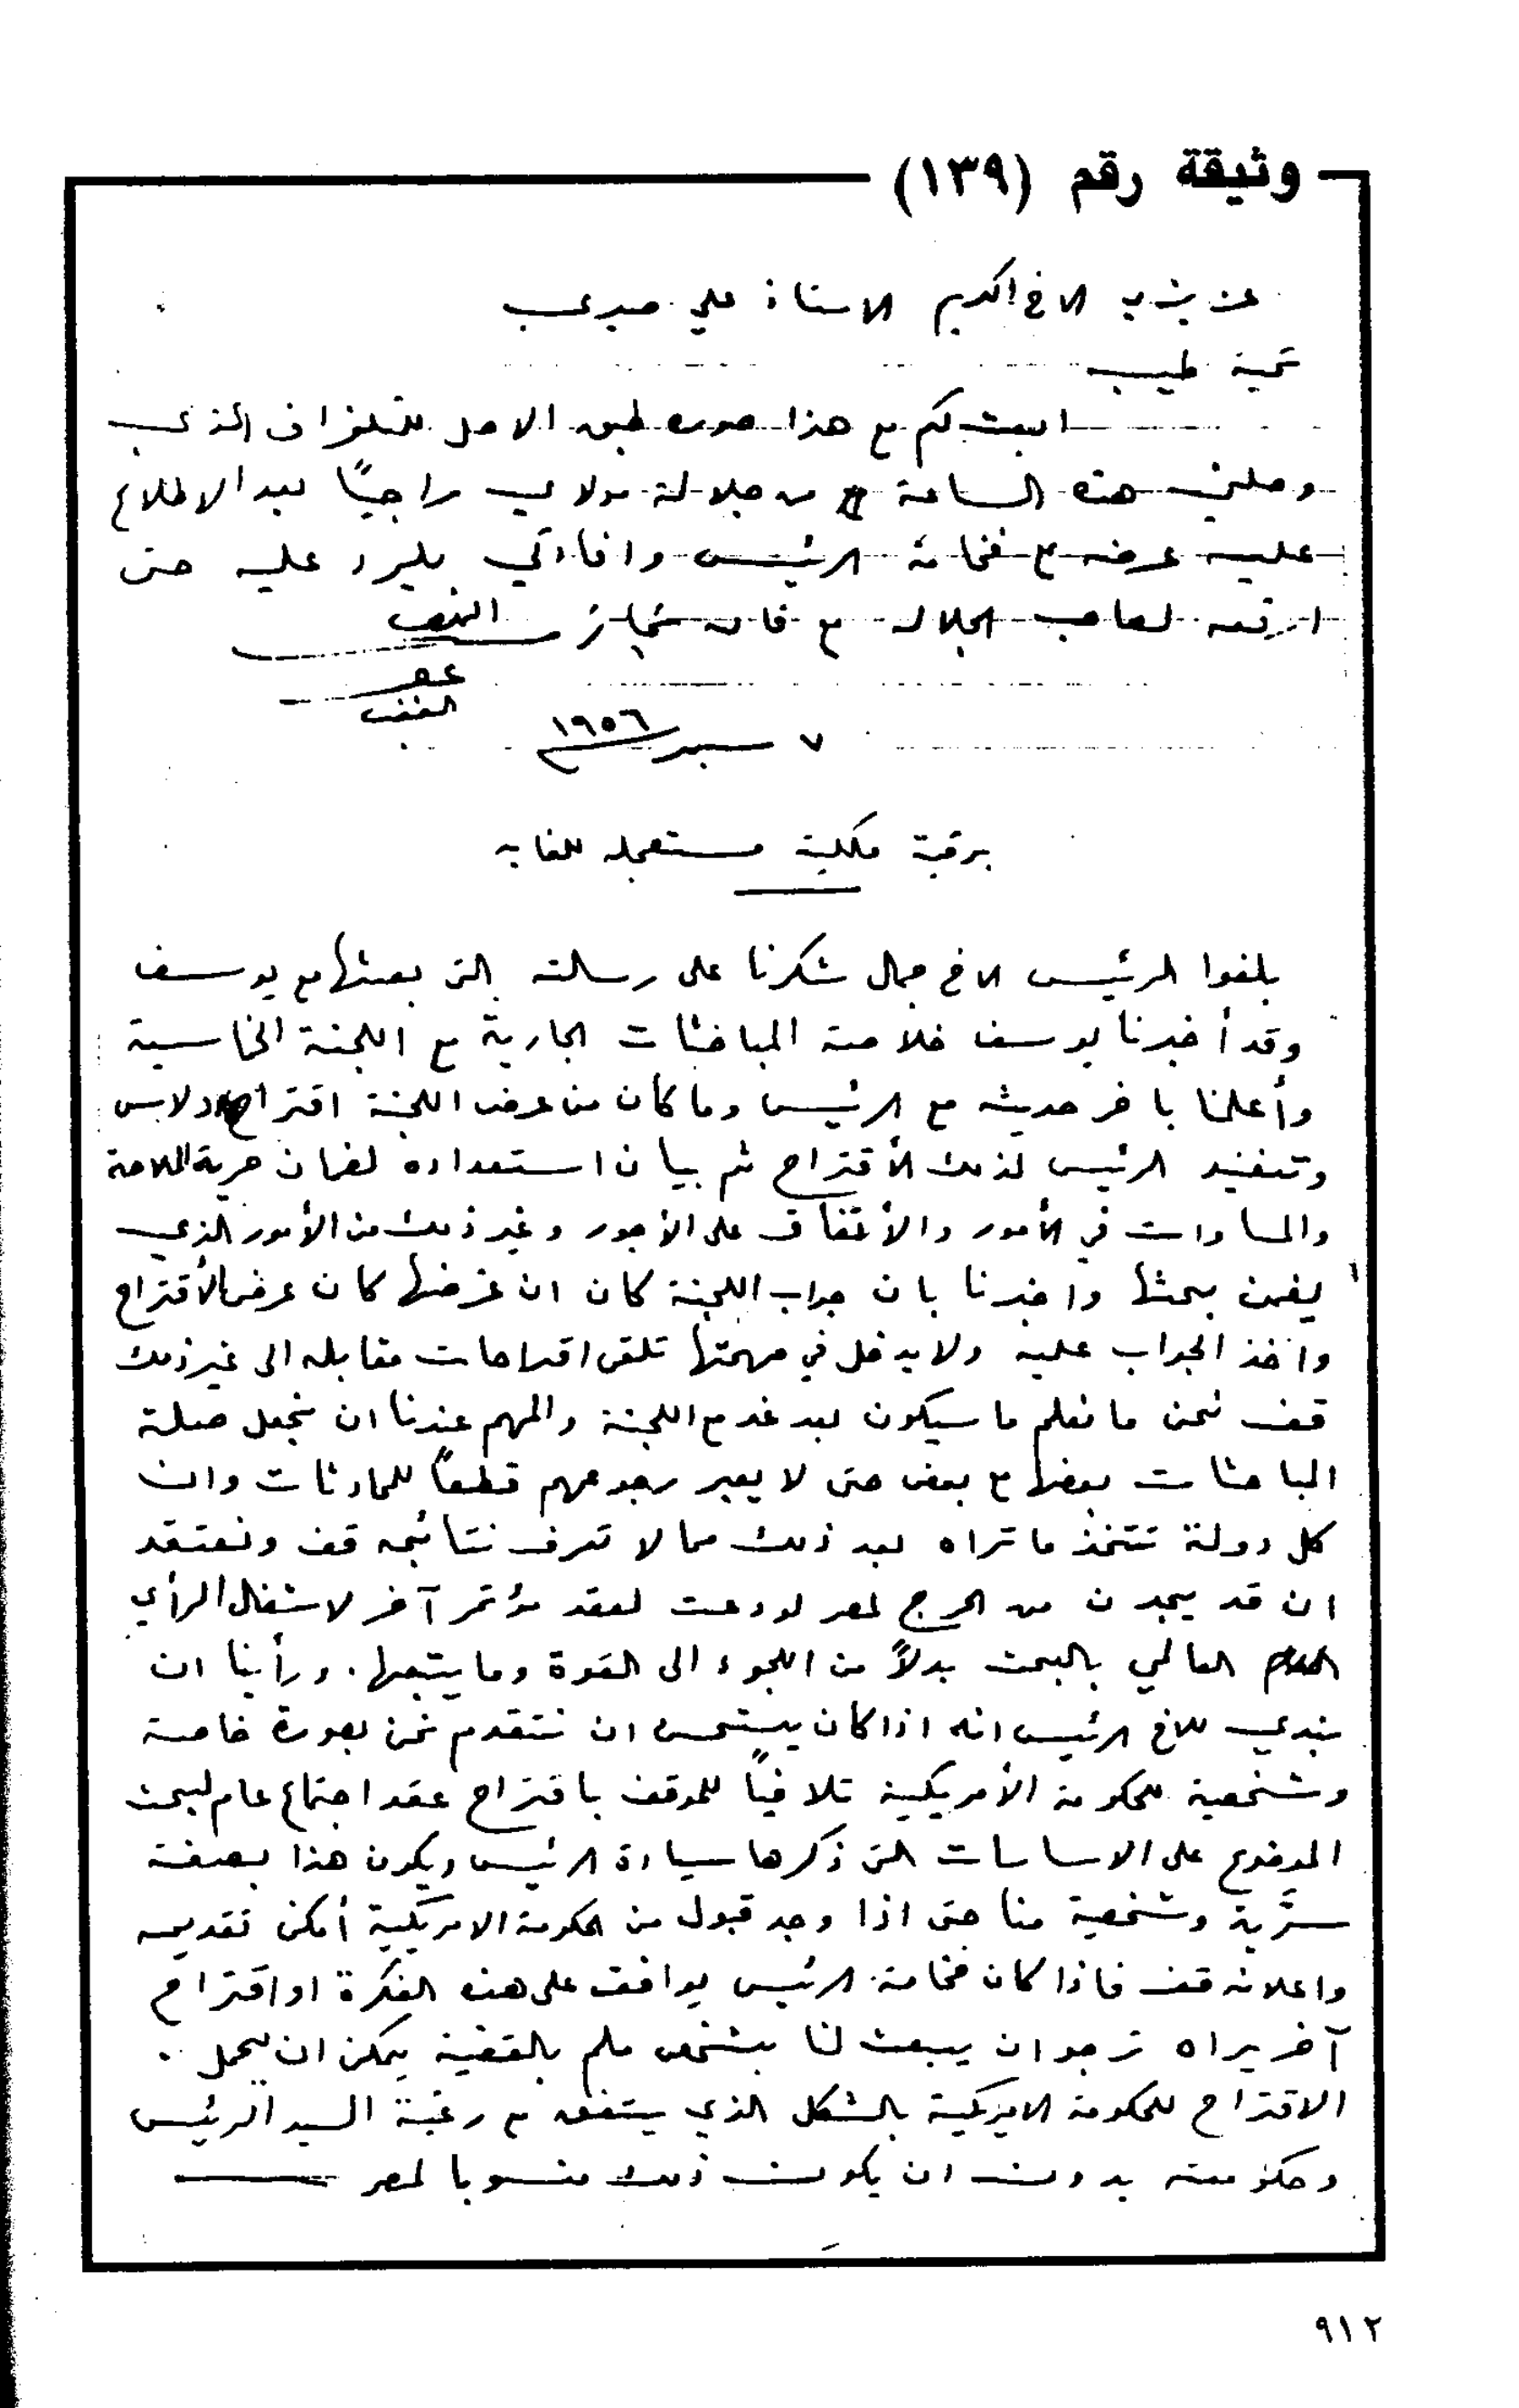 وثيقة رقم (١٣٩)
عزيزي الاخ الكريم الاستاذ علي صبري
تحية طيبه
ابعث لكم مع هذا صوره طبق الاصل للتلغراف الذي
وصلني هذه الساعة من جلالة مولاي راجيًا بعد الاطلاع
عليه عرضه على فخامة الرئيس وافادتي بالرد عليه حتى
ارفعه لصاحب الجلاله مع فائق
٧ سبتمبر ١٩٥٦
برقية ملكية مستعجله للغايه
بلغوا الرئيس الاخ جمال شكرنا على رسالته التى بعثها مع يوسف
وقد أخبرنا يوسف خلاصة المباحثات الجارية مع اللجنة الخماسية
وأعلمنا بآخر حديثه مع الرئيس وما كان من عرض اللجنة اقتراح دلاس
وتفنيد الرئيس لذلك الأقتراح ثم بيان استعداده لضمان حرية الملاحة
والمساوات في الأمور والأتفاق على الأجور وغير ذلك من الأمور الذي
يضمن بحثها واخبرنا بان جواب اللجنة كان ان غرضها كان عرض الأقتراح
واخذ الجواب عليه ولا يدخل في مهمتها تلقى اقتراحات مقابله الى غير ذلك
قف نحن ما نعلم ما سيكون بعد غد مع اللجنة والمهم عندنا ان نجعل صلة
المباحثات بعضها مع بعض حتى لا يعبر رجوعهم قطعاً للمحادثات وان
كل دولة تتخذ ما تراه بعد ذلك مما لا تعرف نتائجه قف ونعتقد
ان قد يجدن من الحرج لمصر لو دعت لعقد مؤتمر آخر لاشغال الرأي
العالمي بالبحث بدلاً من اللجوء الى القوة وما يتبعها. ورأينا ان
نبدي للاخ الرئيس انه اذا كان يستحسن ان نتقدم نحن بصورة خاصة
وشخصية للحكومة الأمريكية تلافياً للموقف باقتراح عقد اجتماع عام لبحث
الموضوع على الاساسات التى ذكرها سيادة الرئيس ويكون هذا بصفة
سرّية وشخصية منا حتى اذا وجد قبول من الحكومة الامريكية أمكن تقديمه
واعلانه قف فاذا كان فخامة الرئيس يوافق على هذه الفكرة او اقتراح
آخر يراه نرجو ان يبعث لنا بشخص ملم بالقضية يمكن ان يحمل
الاقتراح للحكومة الامريكية بالشكل الذي يتفق مع رغبة السيد الرئيس
وحكومته بدون ان يكون ذلك منسوبا لمصر
٩١٢